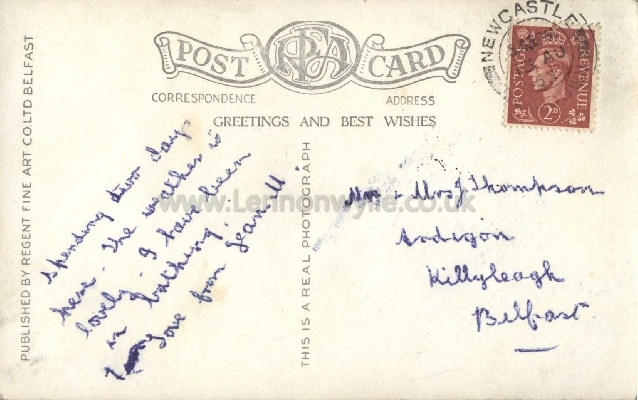 POST CARD
RFA
CORRESPONDENCE
ADDRESS
GREETINGS AND BEST WISHES
NEWCASTLE
POSTAGE
REVENUE
2D
PUBLISHED BY REGENT FINE ART CO. LTD BELFAST
THIS IS A REAL PHOTOGRAPH
www.Lennonwylie.co.uk
spending down day
here. The weather is
lovely. I have been
in bathing.
love from Jean. M.
Mr & Mrs J Thompson
Ardigon
Killyleagh
Belfast.